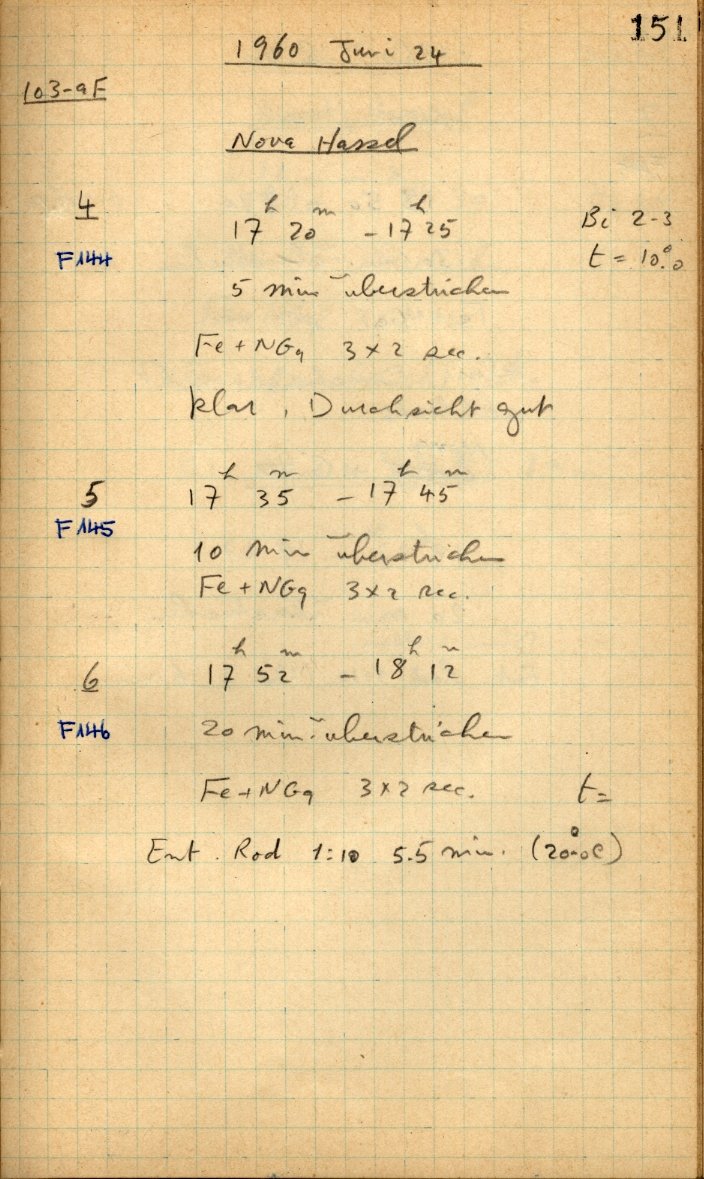 151
1960 Juni 24
103-aF
Nova Hassel
4 17ʰ 20ᵐ - 17ʰ 25 Bi 2-3
F144 t = 10.°0
5 min überstrichen
Fe + NGq 3 x 2 sec.
klar, Durchsicht gut
5 17ʰ 35ᵐ - 17ʰ 45ᵐ
F145
10 min überstrichen
Fe + NGq 3 x 2 sec.
6 17ʰ 52ᵐ - 18ʰ 12ᵐ
F146 20 min. überstrichen
Fe + NGq 3 x 2 sec. t =
Ent. Rod 1:10 5.5 min. (20.°0C)